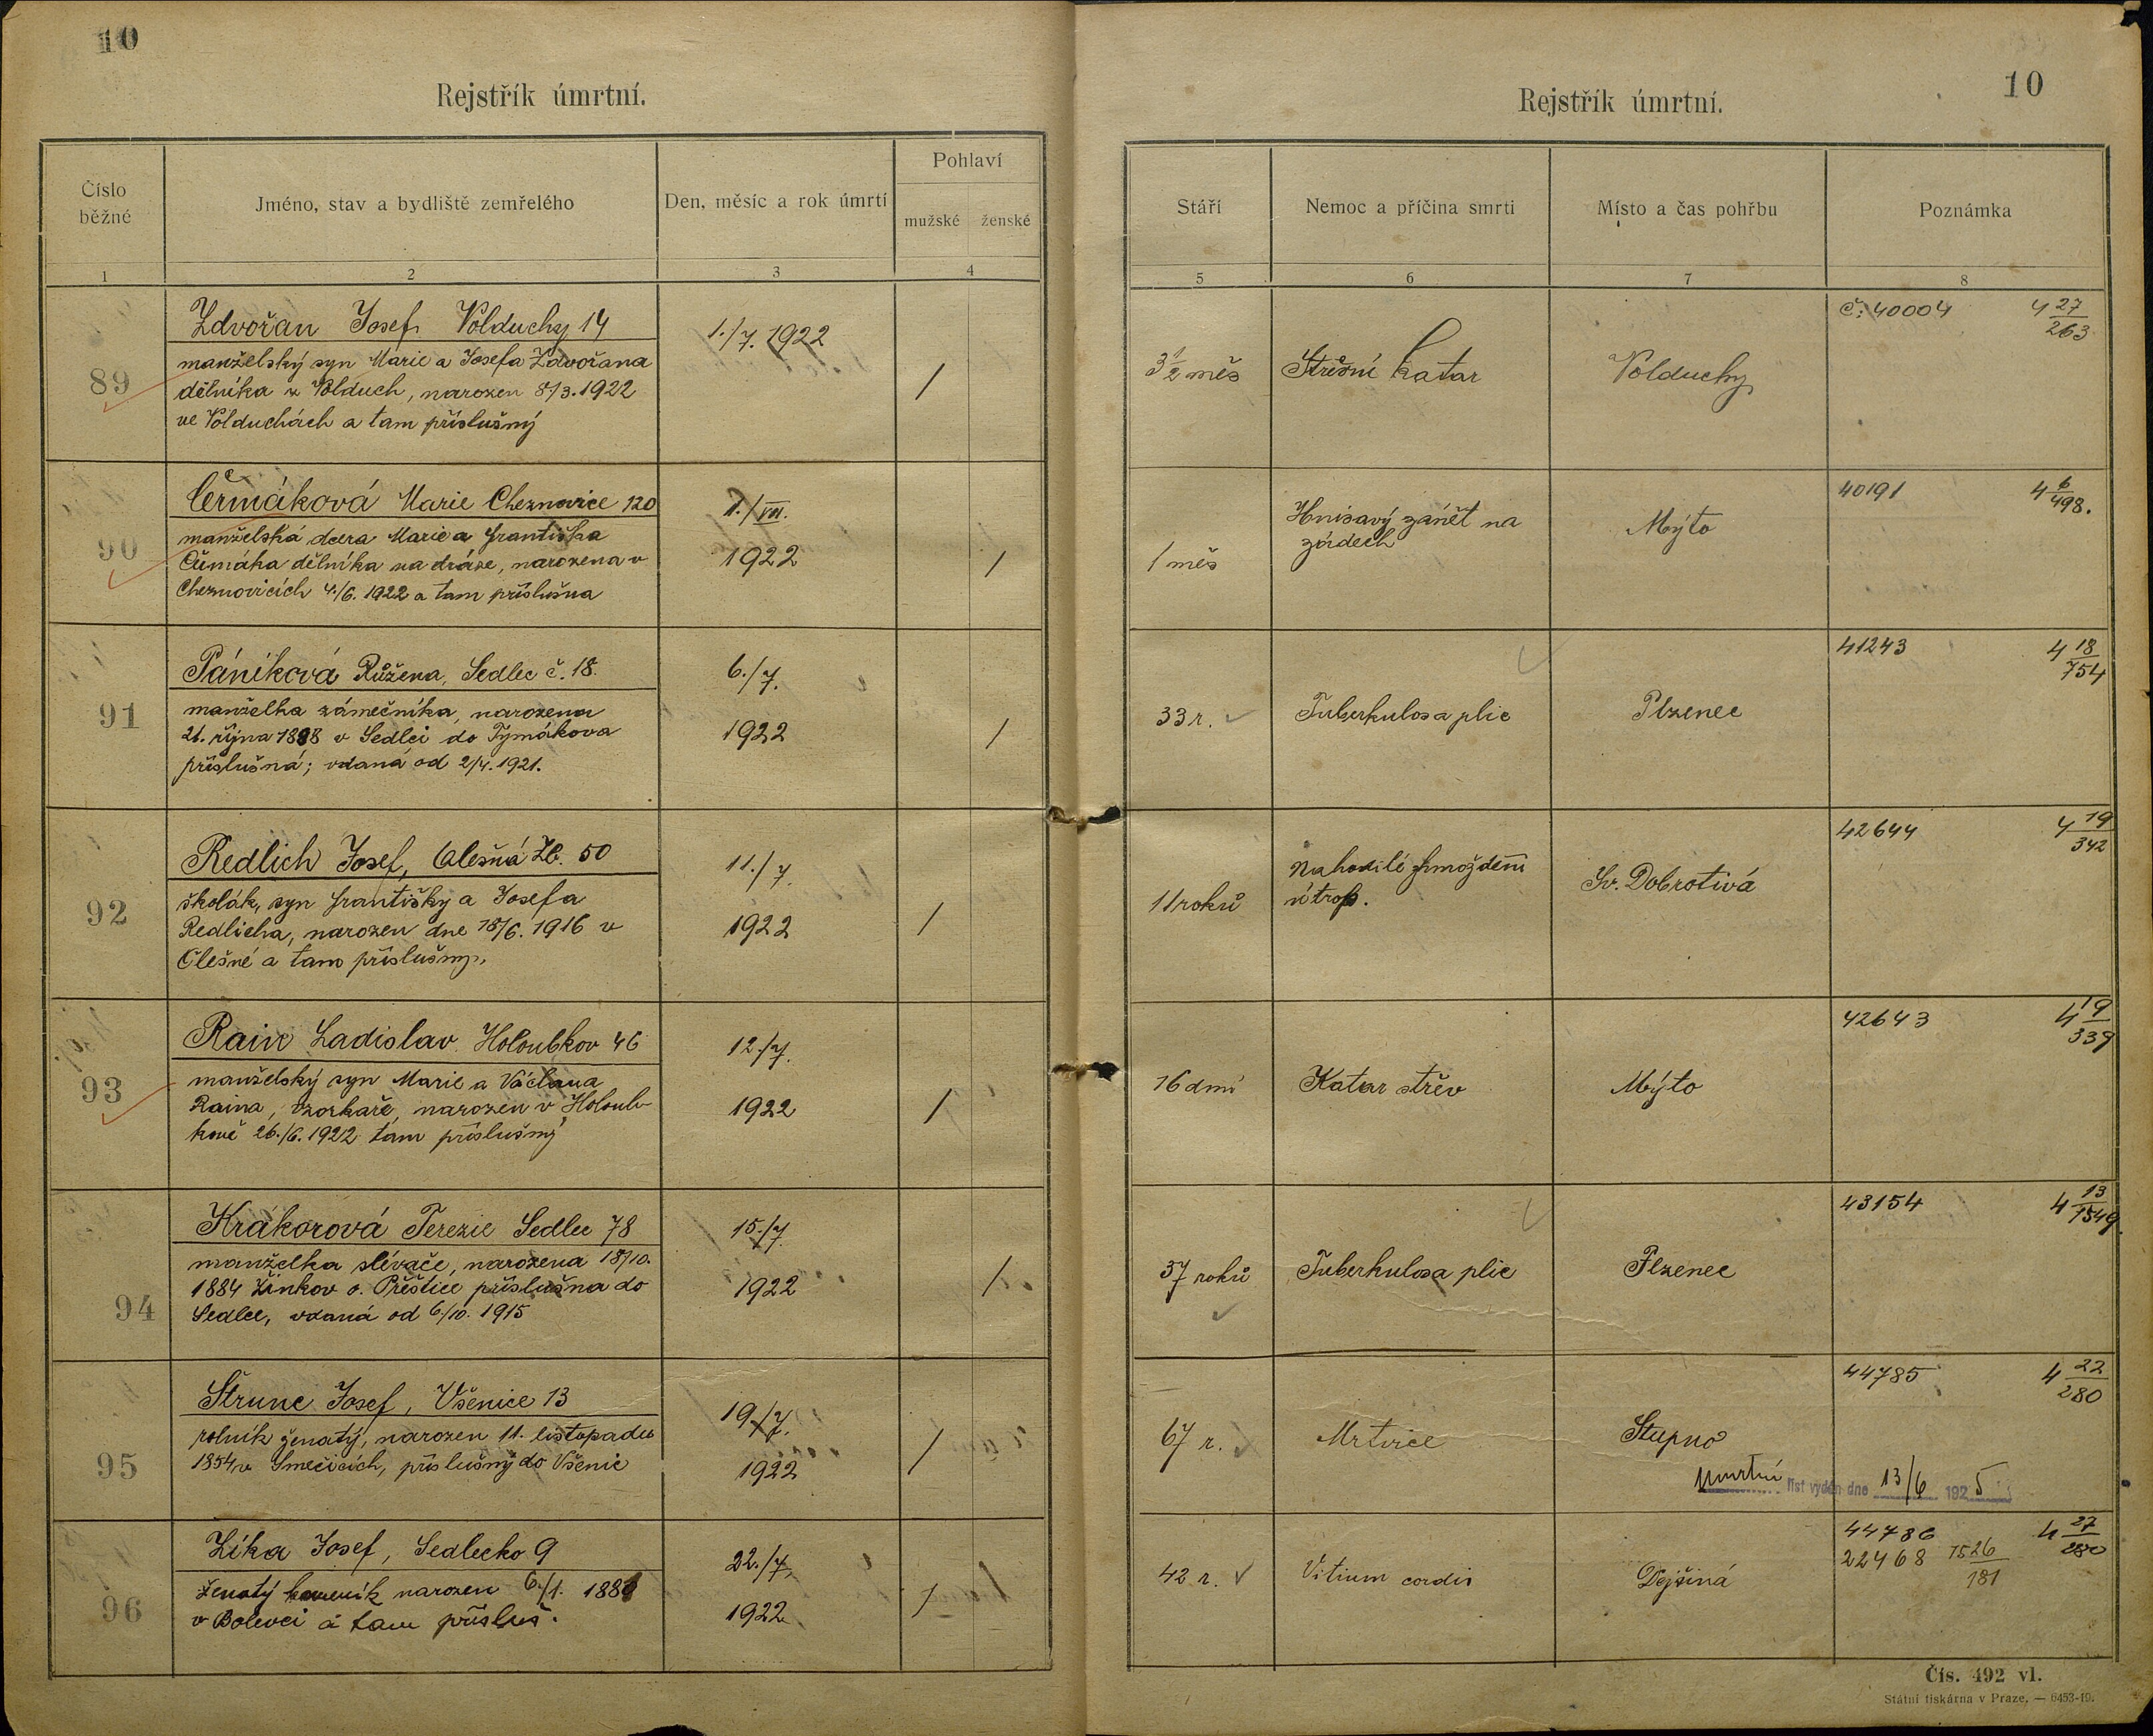 10
Rejstřík úmrtní.
Číslo běžné
Jméno, stav a bydliště zemřelého
Den, měsíc a rok úmrtí
Pohlaví
mužské
ženské
1
2
3
4
89
Zdvořan Josef Volduchy 14
manželský syn Marie a Josefa Zdvořana
dělníka z Volduch, narozen 8/3. 1922
ve Volduchách a tam příslušný
1./7. 1922
/
90
Čermáková Marie Cheznovice 120
manželská dcera Marie a Františka
Čermáka dělníka na dráze, narozena v
Cheznovicích 4./6. 1922 a tam příslušna
1./VII.
1922
/
91
Páníková Růžena, Sedlec č. 18.
manželka zámečníka, narozena
21. října 1888 v Sedlci do Tymákova
příslušná; vdaná od 2/4. 1921.
6./7.
1922
/
92
Redlich Josef, Olešná Zb. 50
školák, syn Františky a Josefa
Redlicha, narozen dne 18/6. 1916 v
Olešné a tam příslušný.
11./7.
1922
/
93
Rain Ladislav Holoubkov 46
manželský syn Marie a Václava
Raina, narozen v Holoub-
kově 26./6. 1922 tam příslušný
12./7.
1922
/
94
Krákorová Terezie Sedlec 78
manželka slévače, narozena 18/10.
1884 Žinkov o. Přeštice příslušna do
Sedlce, vdaná od 6./10. 1915
15./7.
1922
/
95
Štrunc Josef, Všenice 13
rolník ženatý, narozen 11. listopadu
1854 v Smečicích, příslušný do Všenic
19./7.
1922
/
96
Zíka Josef, Sedlecko 9
ženatý narozen 6./1. 1880
v Bolevci a tam přísluš.
22./7.
1922
/
10
Rejstřík úmrtní.
Stáří
Nemoc a příčina smrti
Místo a čas pohřbu
Poznámka
5
6
7
8
3 1/2 měs
Střevní katar
Volduchy
č: 40004
4 27/263
1 měs
Hnisavý zánět na
zádech
Mýto
40191
4 6/498.
33 r.
Tuberkulosa plic
Plzenec
41243
4 18/754
11 roků
Nahodilé zmoždění
útrob.
Sv. Dobrotivá
42644
4 19/342
16 dní
Katar střev
Mýto
42643
4 19/339
37 roků
Tuberkulosa plic
Plzenec
43154
4 13/1549
67 r.
Mrtvice
Stupno
44785
4 22/280
úmrtní list vydán dne 13/6 1925
42 r.
Vitium cordis
Dejšiná
44786
4 27/280
22468 1526/181
Čís. 492 vl.
Státní tiskárna v Praze. — 6453-19.